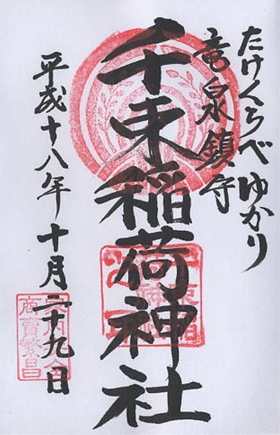 たけくらべゆかり
竜泉鎮守
千束稲荷神社
平成十八年十月二十九日
商賣繁昌